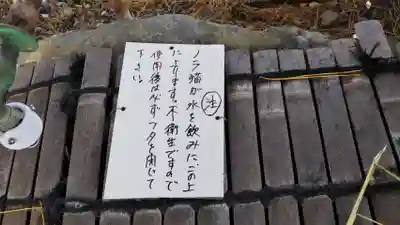 ㊟
ノラ猫が水を飲みにこの上
によります。不衛生ですので
使用後は必ずフタを閉じて
下さい。